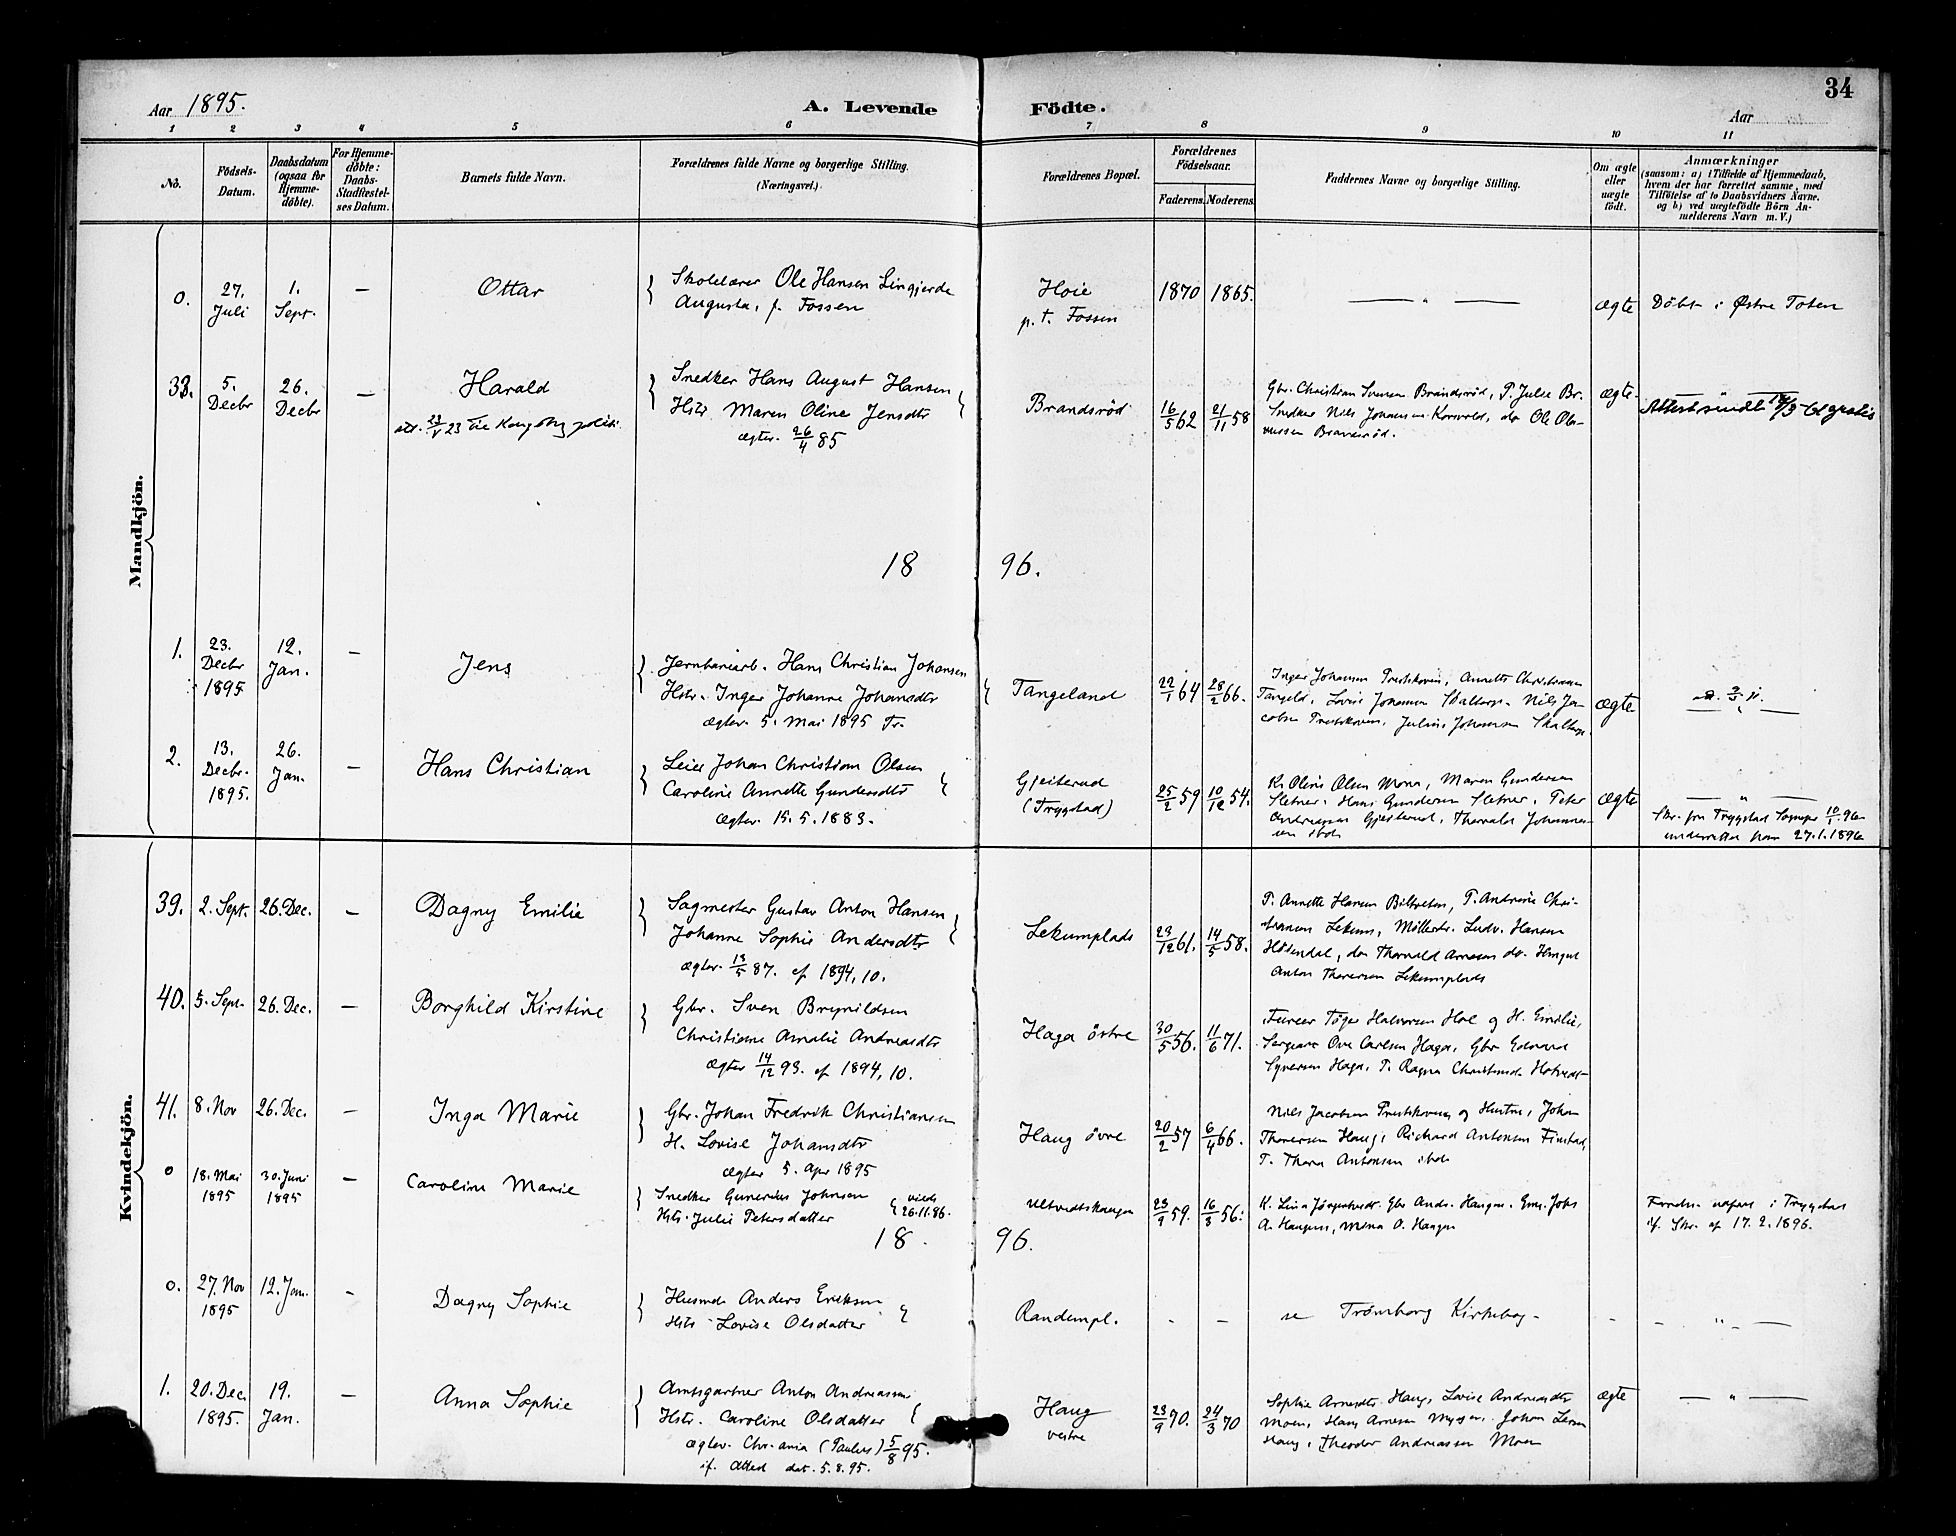 34
Aar 1895.
A. Levende Födte.
Aar
1 2 3 4 5 6 7 8 9 10 11
No.
Födsels-
Datum.
Daabsdatum
(ogsaa for
Hjemme-
döbte).
For Hjemme-
döbte:
Daabs-
Stadfæstel-
ses Datum.
Barnets fulde Navn.
Forældrenes fulde Navne og borgerlige Stilling.
(Næringsvei.)
Forældrenes Bopæl.
Forældrenes
Födselsaar.
Faderens. Moderens.
Faddernes Navne og borgerlige Stilling.
Om ægte
eller
uægte
födt.
Anmærkninger
(saasom: a) i Tilfælde af Hjemmedaab,
hvem der har forrettet samme, med
Tilföielse af to Daabsvidners Navne.
og b) ved uægtefödte Börn An-
melderens Navn m. V.)
Mandkjön.
0. 27. Juli 1. Sept. — Ottar
Skolelærer Ole Hansen Lingjerde
Augusta, f. Fossen
Høie
p. t. Fossen
1870 1865. — " — ægte Döbt i Østre Toten
38. 5. Decbr 26. Decbr — Harald
Snedker Hans August Hansen
Hstr Maren Oline Jensdtr
ægtev. 26/4 85
Brandsrød 16/5 62 21/11 58
Gbr. Christian Svensen Brandsrød, P. Julie Br.
Snedker Nils Johansen Korsvold,
Brandsrød.
ægte.
Attest sendt
gratis
1896.
1. 23. Decbr 1895 12. Jan. — Jens
Jernbanearb. Hans Christian Johansen
Hstr. Inger Johanne Johansdtr
ægtev. 5. Mai 1895 Tr.
Tangeland 22/1 64 28/2 66.
Inger Johansen Prestskoven, Annette Christiansen
Tangeld, Lovise Johansen Skaltorp. Nils Ja-
cobsen Prestskoven, Julius Johansen Skaltorp.
ægte — " —
2. 13. Decbr. 1895. 26. Jan. — Hans Christian
Leier Johan Christian Olsen
Caroline Annette Gundersdtr
ægtev. 15. 5. 1883.
Gjeiterud
(Trygstad)
25/2 59 10/12 54.
K. Oline Olsen Mona, Maren Gundersen
Sletner. Hans Gundersen Sletner. Peter
Andreassen Gjeiterud, Thorvald Johannes-
sen ibd.
ægte — " —
Skr. fra Trygstad Sognepr 10/1 96
underrettet ham 27.1.1896
Kvindekjön.
39. 2. Sept. 26. Dec. — Dagny Emilie
Sagmester Gustav Anton Hansen
Johanne Sophie Andersdtr
ægtev. 13/5 87. cf 1894, 10.
Lekumplads 23/12 61. 14/5 58.
P. Annette Hansen Biltveten, P. Andrine Chri-
stiansen Lekum, Ludv. Hansen
Thorvald Arnesen
Anton Thoresen Lekumplads
40. 5. Sept. 26. Dec. — Borghild Kirstine
Gbr. Sven Brynildsen
Christiane Amalie Andreasdtr
ægtev 14/12 93. cf 1894, 10.
Haga östre 30/5 56. 11/6 71.
Halvorsen Hol og H. Emilie,
Sergeant Ove Carlsen Haga, Gbr Edvard
Syversen Haga, P. Ragna
41. 8. Nov 26. Dec. — Inga Marie
Gbr. Johan Fredrik Christiansen
H. Lovise Johansdtr
ægtev 5. Apr 1895
Haug övre 20/2 57 6/4 66.
Nils Jacobsen Prestskoven og Hustru, Johan
Thoresen Haug, Richard Antonsen Finstad,
P. Thora Antonsen ibd.
0 18. Mai 1895 30. Juni 1895 — Caroline Marie
Snedker Gunerius Johnsen
Hstr. Julie Petersdatter
viede 26.11.86.
Ultvedthaugen 23/9 59. 16/3 56.
K. Lina Gbr Ands. Haugen.
A. Haugen, Mona O. Haugen
i Trygstad
if. Skr. af 17. 2. 1896.
1896.
0. 27. Nov 1895 12. Jan. — Dagny Sophie
Husmd Anders Eriksen
Hstr Lovise Olsdatter
Randempl. - — se Trömborg Kirkebog - — " —
1. 20. Dec. 1895. 19. Jan. — Anna Sophie
Amtsgartner Anton Andreassen
Hstr. Caroline Olsdatter
ægtev. Chr.ania (Paulus) 5/8 95.
if. Attest dat. 5. 8. 95.
Haug
vestre
23/9 70. 24/3 70
Sophie Arnesdtr Haug, Lovise Andreasdtr
Moen, Hans Arnesen Mysen, Johan Larsen
Haug, Theodor Andreassen Moen
ægte — " —